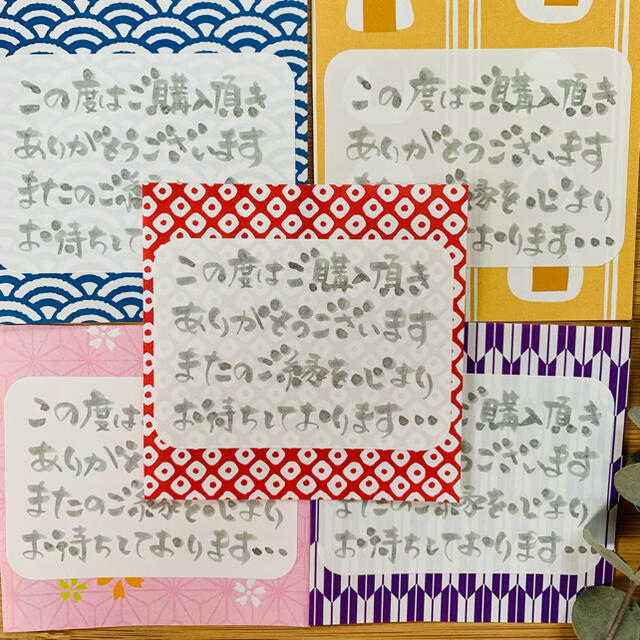 この度はご購入頂き
ありがとうございます
またのご縁
お待ちして
この度はご購入頂き
ありがとうございます
ご縁を心より
おります…
この度はご購入頂き
ありがとうございます
またのご縁を心より
お待ちしております…
この度は
ありがと
またのご縁を心より
お待ちしております…
ご購入頂き
うございます
またのご縁を心より
お待ちしております…